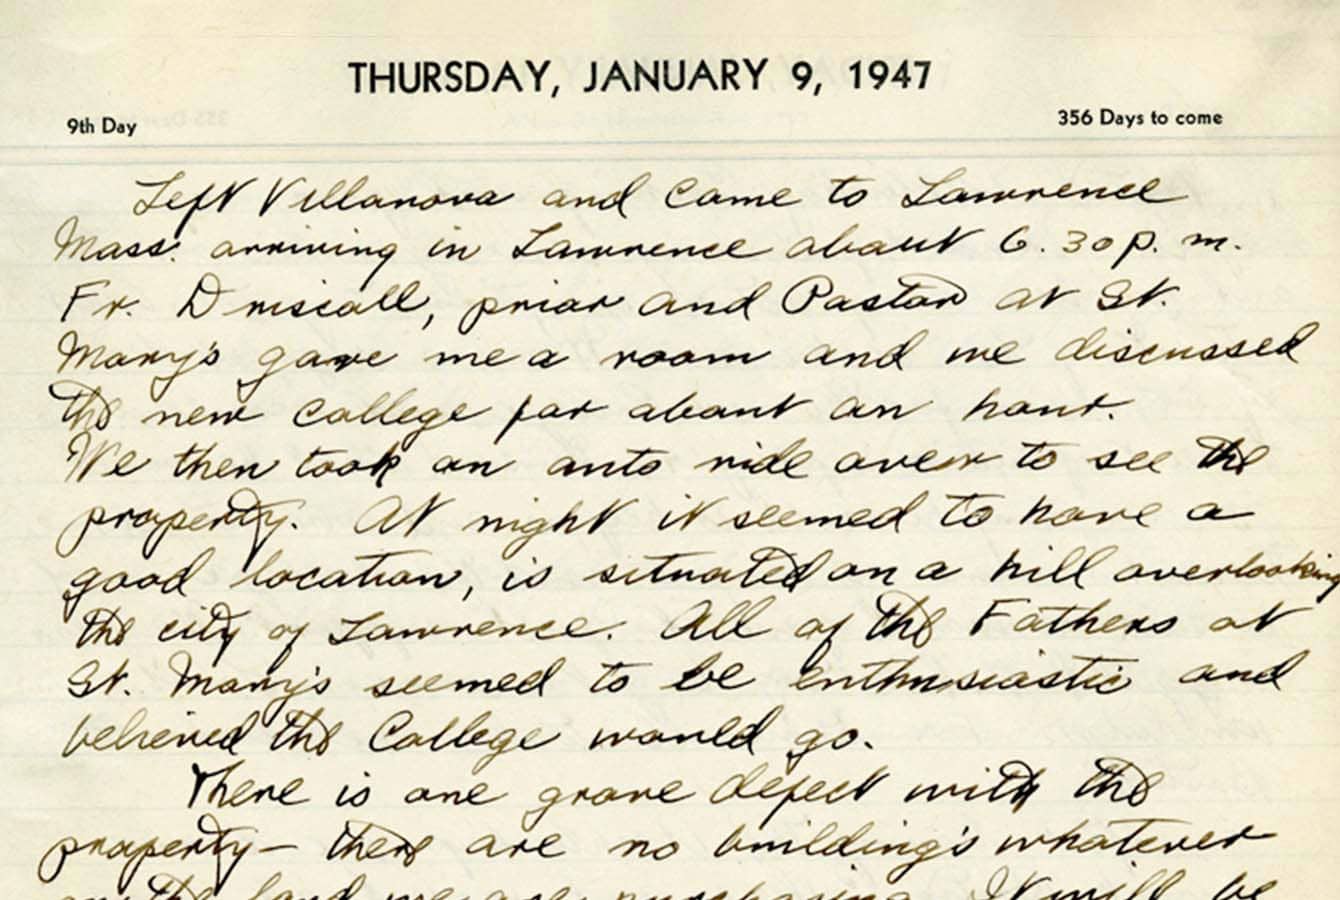 THURSDAY, JANUARY 9, 1947
9th Day
356 Days to come
Left Villanova and came to Lawrence
Mass. arriving in Lawrence about 6.30 p. m.
Fr. Driscoll, prior and Pastor at St.
Mary's gave me a room and we discussed
the new college for about an hour.
We then took an auto ride over to see the
property. At night it seemed to have a
good location, is situated on a hill overlooking
the city of Lawrence. All of the Fathers at
St. Mary's seemed to be enthusiastic and
believed the College would go.
There is one grave defect with the
property - there are no building's whatever
on the land we are purchasing. It will be